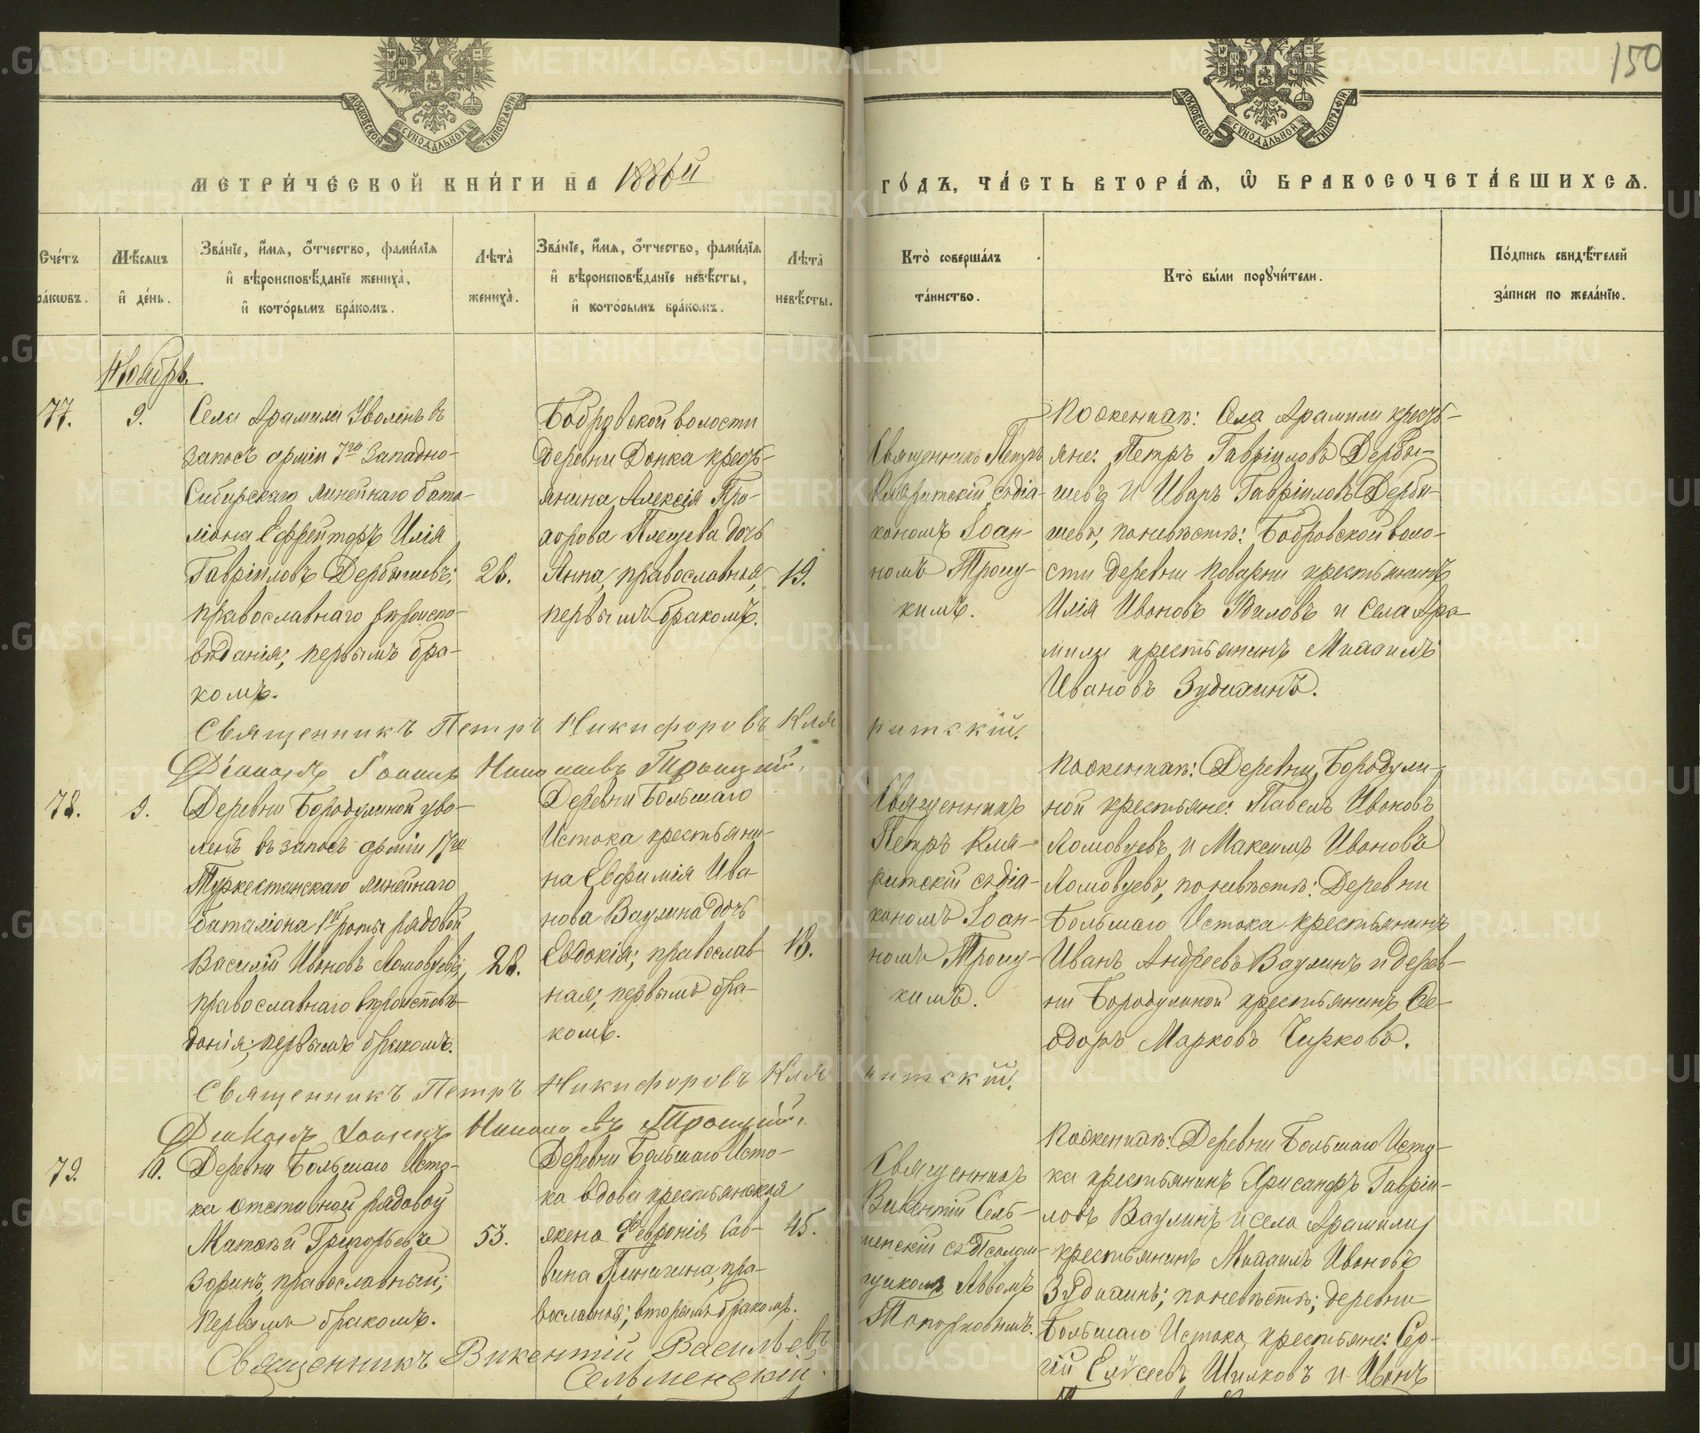 150
МЕТРИЧЕСКОЙ КНИГИ НА 1886й
ГОДЪ, ЧАСТЬ ВТОРАЯ, Ѿ БРАКОСОЧЕТАВШИХСЯ.
МОСКОВСКОЙ СѴНОДАЛЬНОЙ ТИПОГРАФІИ
МОСКОВСКОЙ СѴНОДАЛЬНОЙ ТИПОГРАФІИ
Счетъ браковъ.
Мѣсяцъ и день.
Званіе, имя, отчество, фамилія
и вѣроисповѣданіе жениха,
и которымъ бракомъ.
Лѣта жениха.
Званіе, имя, отчество, фамилія
и вѣроисповѣданіе невѣсты,
и которымъ бракомъ.
Лѣта невѣсты.
Кто совершалъ
таинство.
Кто были поручители.
Подпись свидѣтелей
записи по желанію.
Ноябрь.
77.
9.
Села Арамили Уволенъ въ
запасъ арміи 7го Западно-
Сибирскаго линейнаго бата-
ліона Ефрейторъ Илія
Гавріиловъ Дербышевъ;
православнаго вѣроиспо-
вѣданія; первымъ бра-
комъ.
26.
Бобровской волости
деревни Донка кресть-
янина Алексія Про-
хорова Плещева дочь
Анна, православная,
первымъ бракомъ.
19.
Священникъ Петръ
Кляритскій съ діа-
кономъ Іоан-
номъ Троиц-
кимъ.
По женихѣ: Села Арамили кресть-
яне: Петръ Гавріиловъ Дербы-
шевъ и Иванъ Гавріиловъ Дербы-
шевъ; по невѣстѣ: Бобровской воло-
сти деревни Поварни крестьянинъ
Илія Ивановъ Удиловъ и Села Ара-
мили крестьянинъ Михаилъ
Ивановъ Зудихинъ.
Священникъ Петръ Никифоровъ Кляритскій.
Діаконъ Іоаннъ Троицкій.
78.
9.
Деревни Бородулиной уво-
ленъ въ запасъ арміи 17го
Туркестанскаго линейнаго
баталіона 1й роты рядовой
Василій Ивановъ Ломовцевъ;
православнаго вѣроисповѣ-
данія; первымъ бракомъ.
28.
Деревни Большаго
Истока крестьяни-
на Евфимія Ива-
нова Ваулина дочь
Евдокія; православ-
ная; первымъ бра-
комъ.
18.
Священникъ
Петръ Кля-
ритскій съ діа-
кономъ Іоан-
номъ Троиц-
кимъ.
По женихѣ: Деревни Бородули-
ной крестьяне: Павелъ Ивановъ
Ломовцевъ и Максимъ Ивановъ
Ломовцевъ, по невѣстѣ: Деревни
Большаго Истока крестьянинъ
Иванъ Андреевъ Ваулинъ и дерев-
ни Бородулиной крестьянинъ Ѳе-
одоръ Марковъ Чирковъ.
Священникъ Петръ Никифоровъ Кляритскій.
Діаконъ Іоаннъ Троицкій.
79.
10.
Деревни Большаго Исто-
ка отставной рядовой
Матѳей Григорьевъ
Зоринъ, православный;
первымъ бракомъ.
53.
Деревни Большаго Исто-
ка вдова крестьянская
жена Февронія Сав-
вина Пинигина, пра-
вославная; вторымъ бракомъ.
45.
Священникъ
Викентій Сель-
менскій съ Псалом-
щикомъ Львомъ
Топорковымъ.
По женихѣ: Деревни Большаго Исто-
ка крестьянинъ Хрисанфъ Гаврiи-
ловъ Ваулинъ и села Арамили
крестьянинъ Михаилъ Ивановъ
Зудихинъ; по невѣстѣ; деревни
Большаго Истока, крестьяне: Сер-
гій Елисеевъ Шилковъ и Иванъ
Священникъ Викентій Васильевъ
Сельменскій.